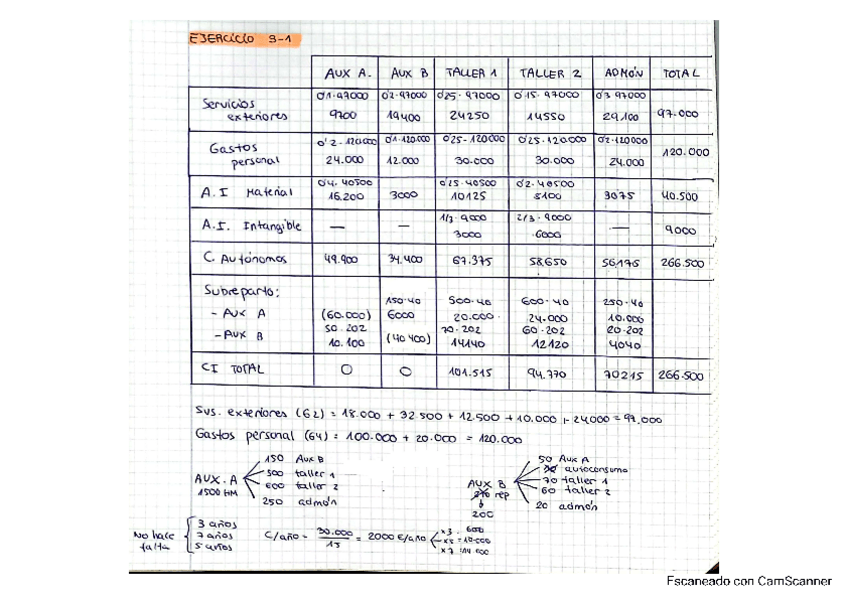 EJERCICIO 9-1
AUX A. AUX B TALLER 1 TALLER 2 ADMÓN TOTAL
Servicios exteriores 0'1·97000 0'2·97000 0'25·97000 0'15·97000 0'3·97000
9700 19400 24250 14550 29.100 97.000
Gastos personal 0'2·120000 0'1·120.000 0'25-120000 0'25.120.000 0'2·120000
24.000 12.000 30.000 30.000 24.000 120.000
A.I Material 0'4·40500 0'25·40500 0'2·40500
16.200 3000 10125 8100 3075 40.500
A.I. Intangible — — 1/3·9000 2/3·9000 —
3000 6000 9000
C. Autónomos 49.900 34.400 67.375 58.650 56175 266.500
Subreparto:
150·40 500·40 600·40 250·40
- AUX A (60.000) 6000 20.000 24.000 10.000
50·202 70·202 60·202 20·202
- AUX B 10.100 (40 400) 14140 12120 4040
CI TOTAL 0 0 101.515 94.770 70215 266.500
Svs. exteriores (62) = 18.000 + 32.500 + 12.500 + 10.000 + 24000 = 97.000
Gastos personal (64) = 100.000 + 20.000 = 120.000
AUX. A
1500 HM
150 Aux B
500 taller 1
600 taller 2
250 admón
AUX B
210 rep
200
50 Aux A
autoconsumo
70 taller 1
60 taller 2
20 admón
No hace falta
3 años
7 años
5 años
C/año = 30.000 / 15 = 2000 €/año